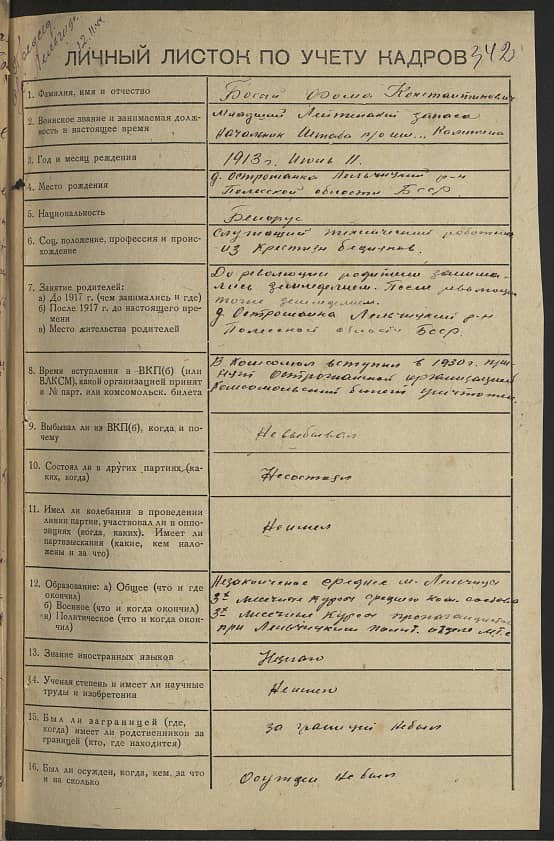 12.11.44
ЛИЧНЫЙ ЛИСТОК ПО УЧЕТУ КАДРОВ 342
1. Фамилия, имя и отчество
Фома Константинович
2. Воинское звание и занимаемая долж-
ность в настоящее время
Младший Лейтенант запаса
Начальник Штаба п/о им... Калинина
3. Год и месяц рождения
1913 г. Июнь 11.
4. Место рождения
д. Острожанка Лельчицкий р-н
Полесской области БССР.
5. Национальность
Белорус
6. Соц. положение, профессия и проис-
хождение
Служащий технический работник
из крестьян бедняков.
7. Занятие родителей:
а) До 1917 г. (чем занимались и где)
б) После 1917 г. до настоящего вре-
мени
в) Место жительства родителей
До революции родители занима-
лись земледелием. После революции
тоже земледелием.
д. Острожанка Лельчицкий р-н
Полесской области БССР.
8. Время вступления в ВКП(б) (или
ВЛКСМ), какой организацией принят
и № парт. или комсомольск. билета
В Комсомол вступил в 1930 г. при-
нят Острожанской организацией
Комсомольский билет уничтожен.
9. Выбывал ли из ВКП(б), когда и по-
чему
Не выбывал
10. Состоял ли в других партиях (ка-
ких, когда)
Не состоял
11. Имел ли колебания в проведении
линии партии, участвовал ли в оппо-
зициях (когда, каких). Имеет ли
партвзыскания (какие, кем нало-
жены и за что)
Не имел
12. Образование: а) Общее (что и где
окончил)
б) Военное (что и когда окончил)
в) Политическое (что и когда окон-
чил)
Незаконченое среднее м. Лельчицы
3х Месячные Курсы среднего ком. состава
3х Месячные Курсы пропагандистов
при Лельчицком полит. отделе МТС
13. Знание иностранных языков
14. Ученая степень и имеет ли научные
труды и изобретения
Не имею
15. Был ли заграницей (где,
когда) имеет ли родственников за
границей (кто, где находится)
За границей не был
16. Был ли осужден, когда, кем, за что
и на сколько
Осужден не был